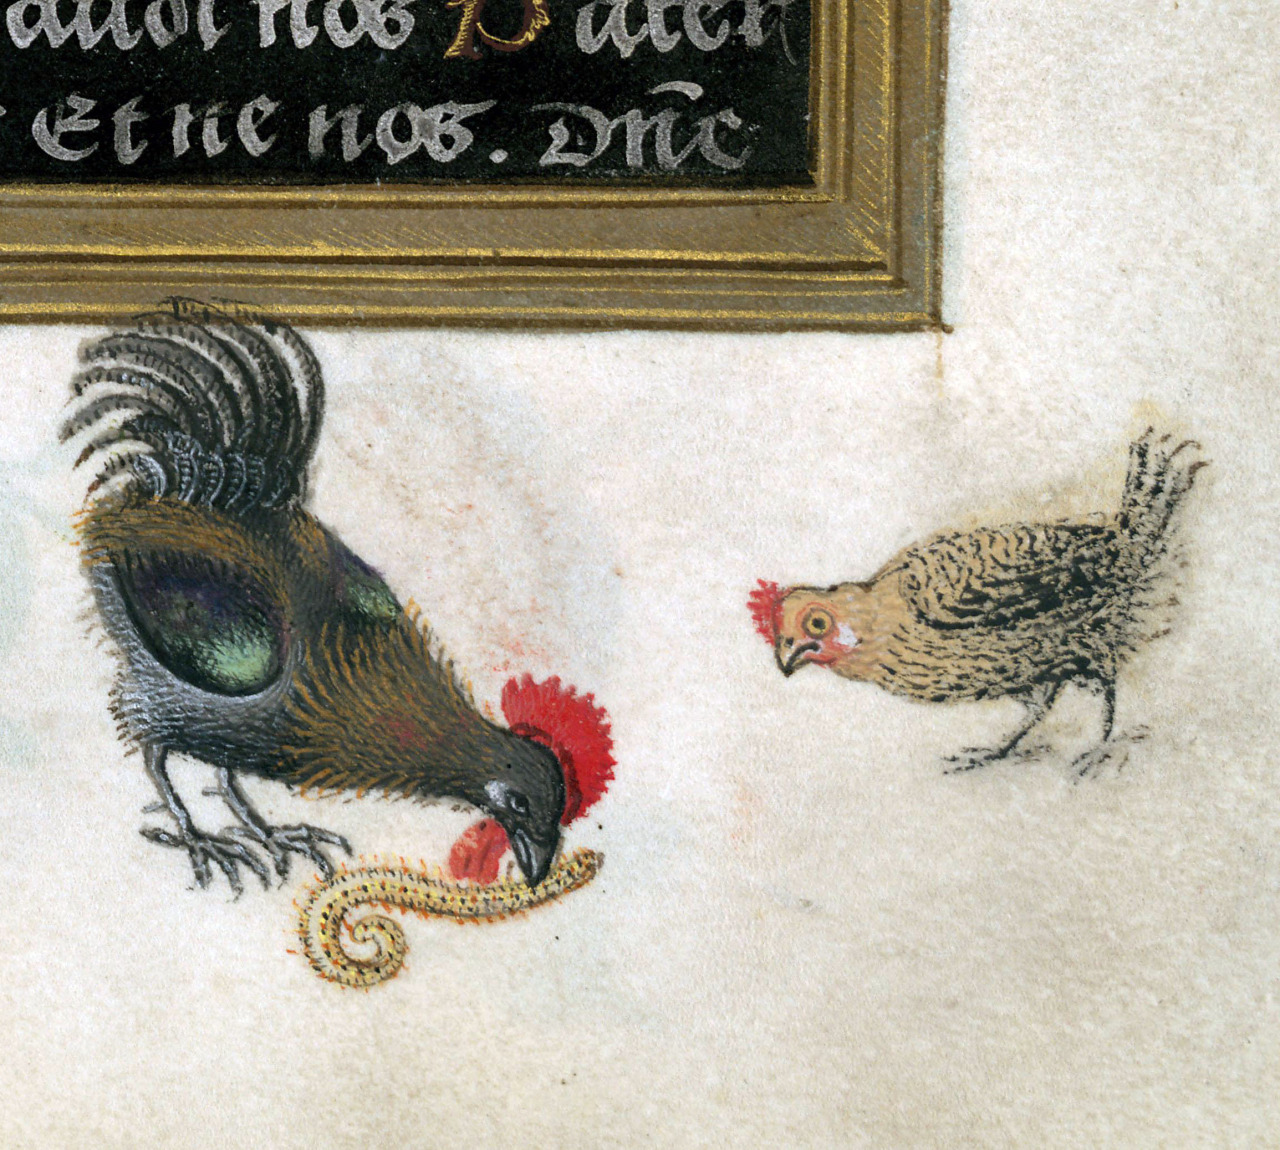 audi nos Pater
Et ne nos. Dn̄e